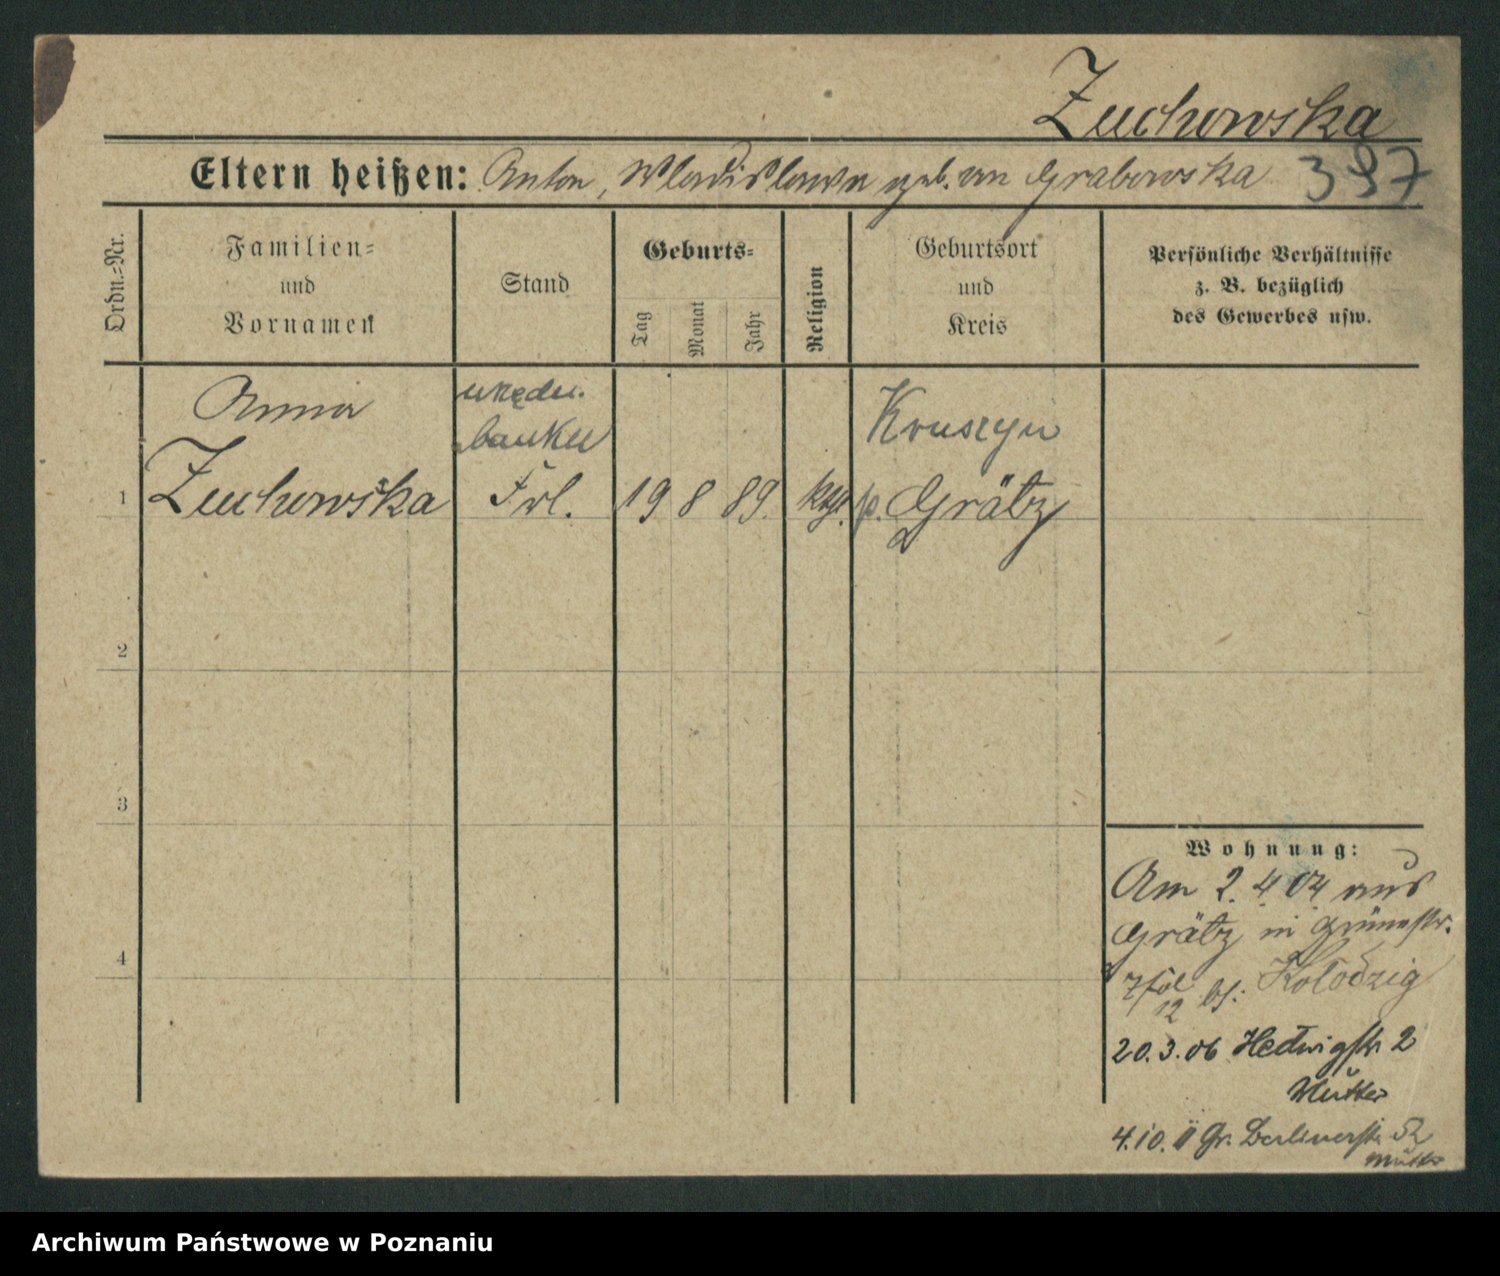 Zuchowska
Eltern heißen: Anton, Wladislawa geb. von Grabowska 397
Ordn.=Nr.
Familien=
und
Vornamen
Stand
Geburts=
Tag
Monat
Jahr
Religion
Geburtsort
und
Kreis
Persönliche Verhältnisse
z. B. bezüglich
des Gewerbes usw.
Anna
urzędn.
banku
Kruszyn
1 Zuchowska Frl. 19 8 89. kth. p. Grätz
2
3
4
Wohnung:
Am 2. 4 04 aus
Grätz in Grünestr.
bei: Kolodzig
20.3.06 Hedwigstr 2
Mutter
4.10.11 Gr. Berlinerstr. 52
Mutter
Archiwum Państwowe w Poznaniu